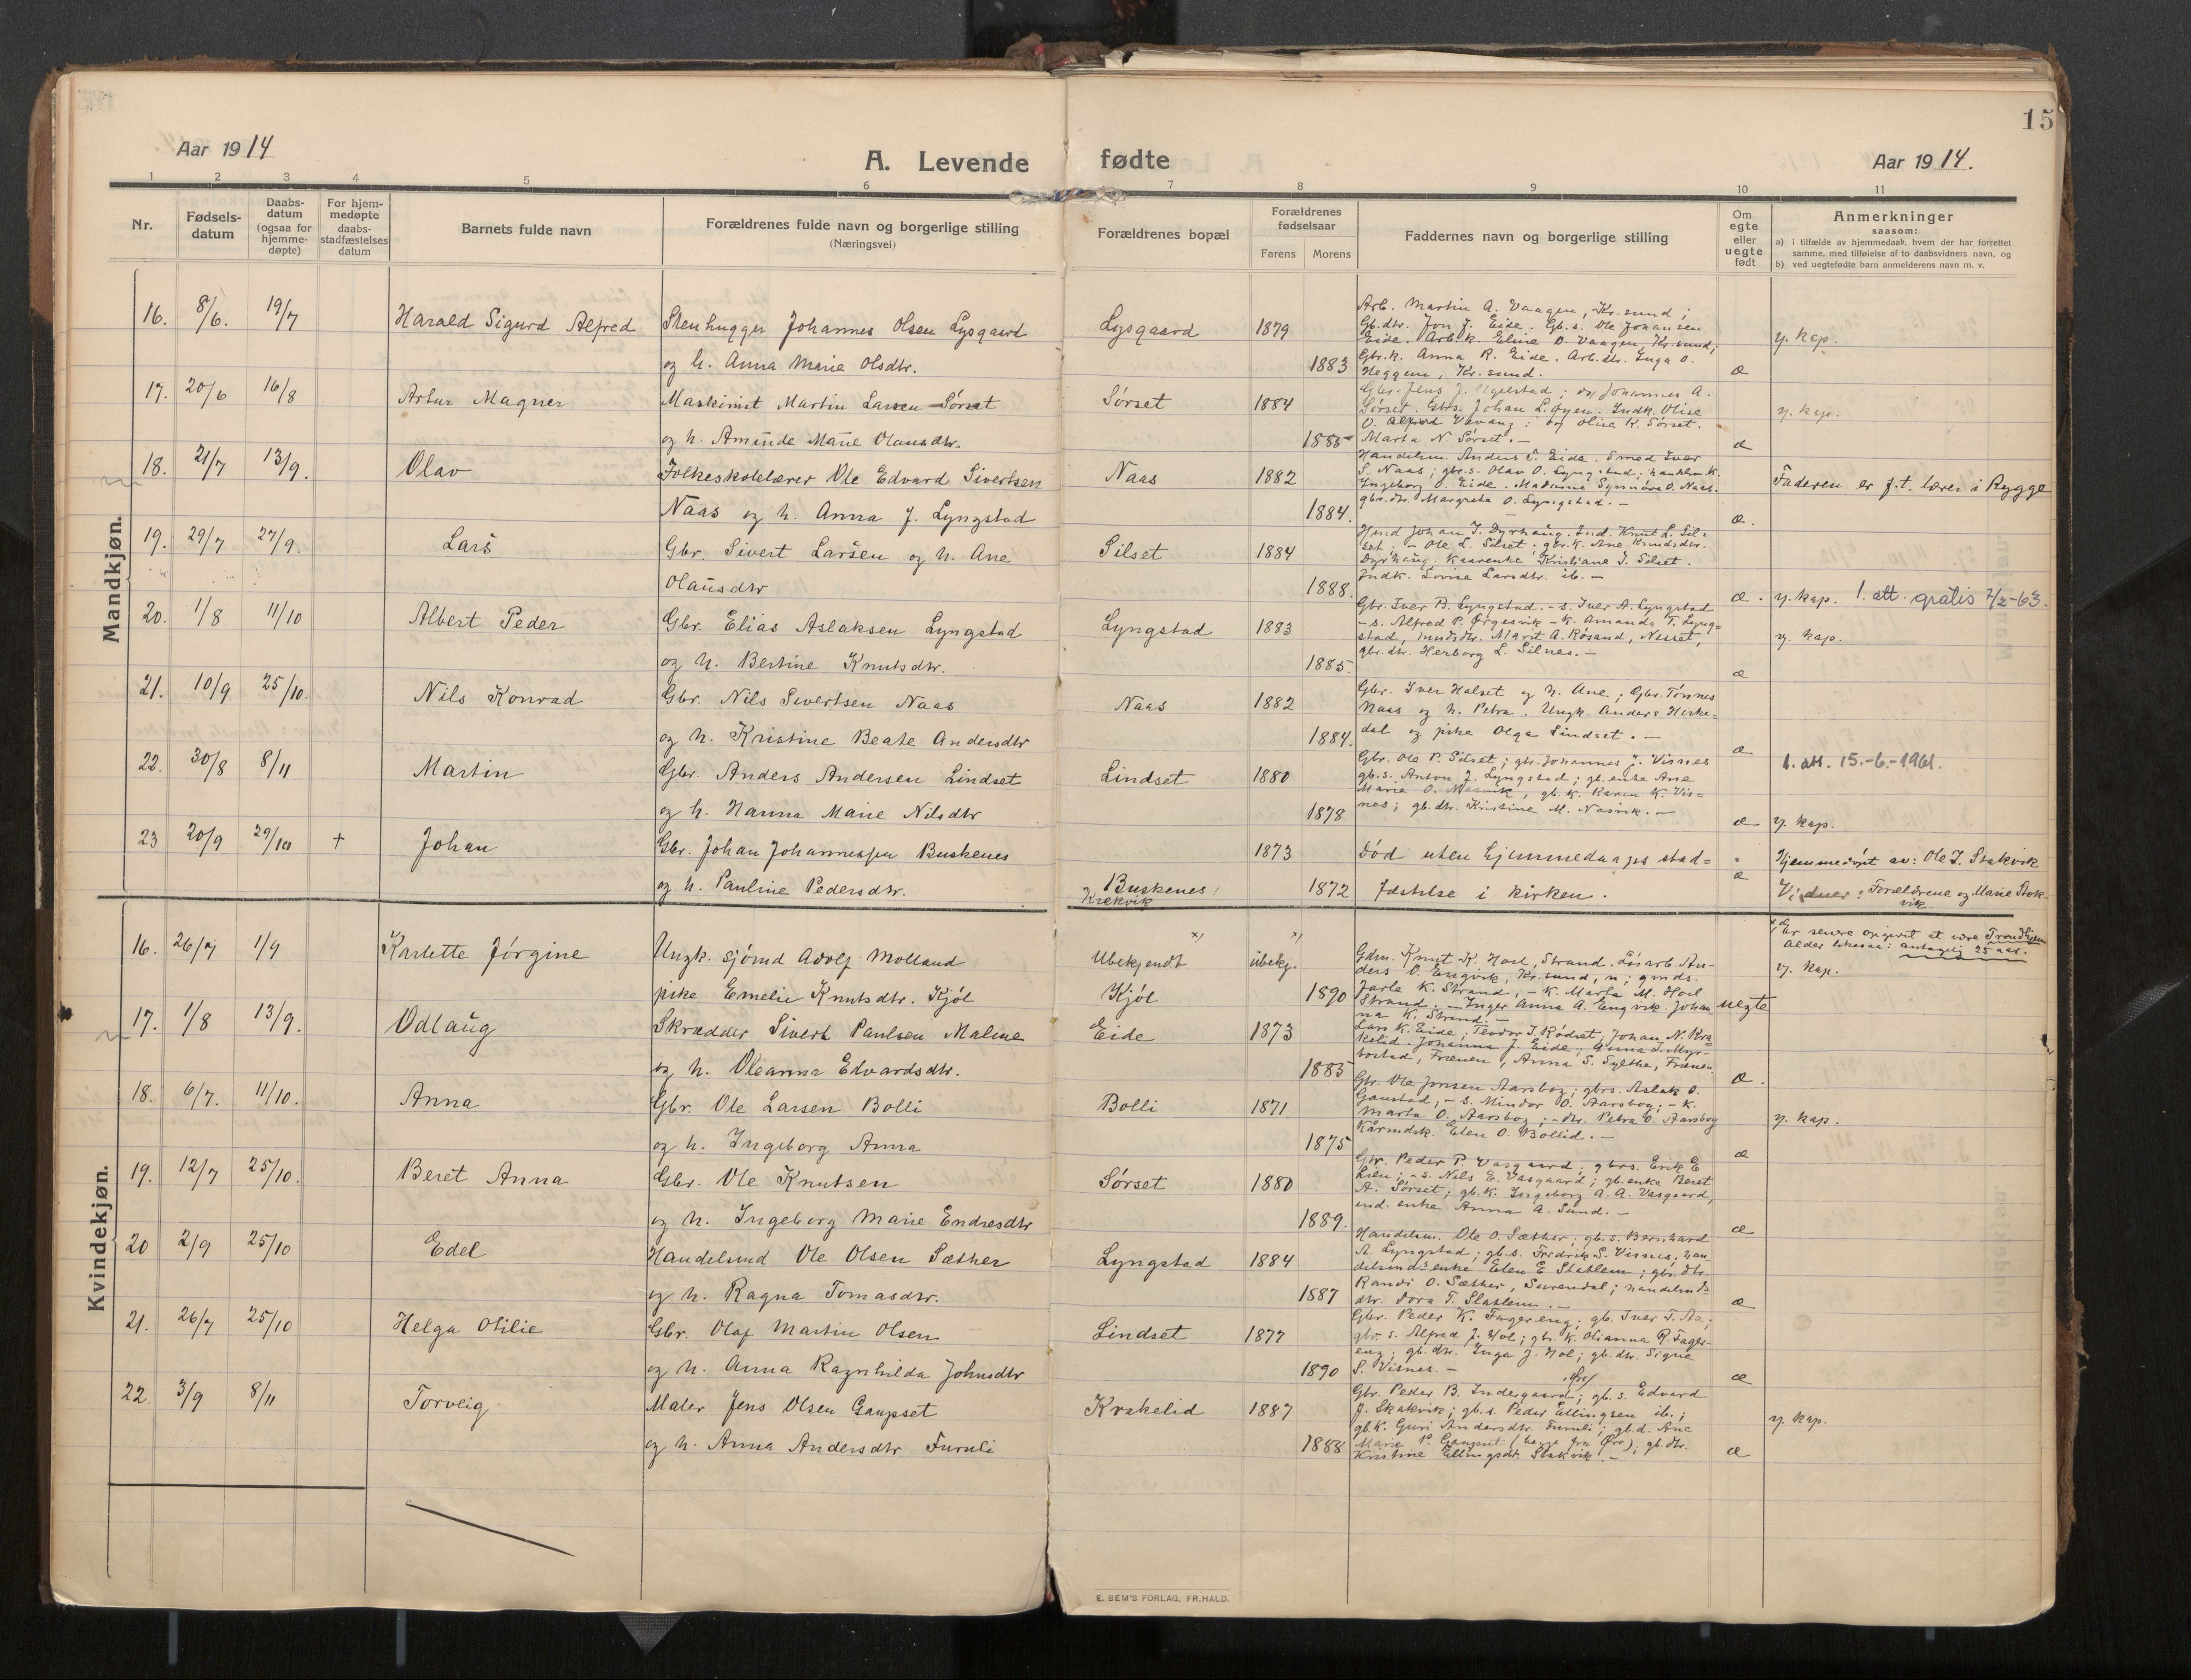 15
Aar 1914
A. Levende fødte
Aar 1914.
1 2 3 4 5 6 7 8 9 10 11
Nr.
Fødsels-
datum
Daabs-
datum
(ogsaa for
hjemme-
døpte)
For hjem-
medøpte
daabs-
stadfæstelses
datum
Barnets fulde navn
Forældrenes fulde navn og borgerlige stilling
(Næringsvei)
Forældrenes bopæl
Forældrenes
fødselsaar
Farens Morens
Faddernes navn og borgerlige stilling
Om
egte
eller
uegte
født
Anmerkninger
saasom:
a) i tilfælde av hjemmedaab, hvem der har forrettet
samme, med tilføielse af to daabsvidners navn, og
b) ved uegtefødte barn anmelderens navn m. v.
Mandkjøn.
16. 8/6. 19/7 Harald Sigurd Alfred Stenhugger Johannes Olsen Lysgaard Lysgaard 1879
og h. Anna Marie Olsdtr. 1883 æ
Arb. Martin A. Vaagen, Kr.sund;
Gb.dtr. Jon J. Eide. Gb.s. Ole Johansen
Eide. Arb.k. Eline O. Vaagen, Kr.sund;
Gbr.k. Anna R. Eide. Arb.dtr. Inga O.
Heggem, Kr.sund.
y. kap.
17. 20/6 16/8 Artur Magner Maskinist Martin Larsen Sørset Sørset 1884
og h. Aminde Marie Olausdtr. 1885 æ
Gbr. Jens J. ; og Johannes A.
Sørset. Gbrs. Johan L. Øyen. Indk. Olise
O. Alfred Vevang; og Olise K. Sørset.
Marta N. Sørset. -
y. kap.
18. 21/7 13/9. Olav Folkeskolelærer Ole Edvard Sivertsen Naas 1882
Naas og h. Anna J. Lyngstad 1884. æ.
Handelsm. Anders T. Eide. Smed Iver
S. Naas; gbr.s. Olav O. Lyngstad; handelsm.k.
Ingeborg O. Eide. Madame Synnøve O. Naas.
gbr.dtr. Margreta O. Lyngstad. -
Faderen er f.t. lærer i Rygge
19. 29/7 27/9. Lars Gbr. Sivert Larsen og h. Ane Silset 1884
Olausdtr 1888. æ.
Hand Johan I. Dyrhaug. Ind. Knut L. Sil-
set; - Ole L. Silset; gbr.k. Ane Knudsdtr.
Dyrhaug. Kaarenke Kristiane J. Silset.
Indk. Lovise Larsdtr. ib. -
y. kap. 1. att. gratis 7/2-63.
20. 1/8 11/10 Albert Peder Gbr. Elias Aslaksen Lyngstad Lyngstad 1883
og h. Bertine Knutsdtr. 1885. æ
Gbr. Iver B. Lyngstad. - s. Iver A. Lyngstad
- s. Alfred P. Ørgesvik - k. Amanda T. Lyng-
stad, indsdtr. Marit A. Røsand, Nesset,
gbr.dtr. Herborg L. Silnes. -
y. kap.
21. 10/9 25/10. Nils Konrad Gbr. Nils Sivertsen Naas Naas 1882
og h. Kristine Beate Andersdtr 1884. æ
Gbr. Iver Halset og h. Ane; Gbr. Tønnes
Naas og h. Petra. Ungk. Anders Heske-
dal og pike Olga Lindset. -
22. 30/8 8/11 Martin Gbr. Anders Andersen Lindset Lindset 1880
og h. Hanna Marie Nilsdtr 1878 æ
Gbr. Ole P. Silset; gbr. Johannes J. Visnes
gb.s. Anton J. Lyngstad; gb.enke Ane
Marie O. Nasvik, gb.k. Karen K. Vis-
nes; gb.dtr. Kristine M. Nasvik. -
1. att. 15.-6.-1961.
y. kap.
23 20/9 29/10 + Johan Gbr. Johan Johannessen Buskenes 1873
og h. Pauline Pedersdtr. Buskenes, Krækvik 1872 æ
Død uten hjemmedaaps stad-
fæstelse i kirken.
Hjemmedøpt av: Ole I. Stakvik
Vidner: Forældrene og Marie Stok-
vik.
Kvindekjøn.
16. 26/7 1/9 Karlette Jørgine Ungk. sjømd Adolf Molland Ubekjendt x) ubekj. x)
pike Emelie Knutsdtr. Kjøl Kjøl 1890 uegte
Gdm. Knut K. Hoel, Strand. Løsarb. An-
ders O. Engvik, Kr.sund, n; gmds.
Jarle K. Strand, - k. Marta M. Hoel
Strand. - Inger Anna A. Engvik. Johan-
na K. Strand. -
x) Er senere opgivet at være Trondhjem
Alder likesaa: antagelig 25 aar.
y. kap.
17. 1/8 13/9. Odlaug Skrædder Sivert Paulsen Malme Eide 1873
og h. Oleanna Edvardsdtr. 1885 æ.
Lars K. Eide; Teodor I. Rødset, Johan N. Kra-
kelid. Johanna J. Eide; Gunna I. Myr-
bostad, Frænen, Anna S. Sylthe, Frænen.
18. 6/7. 11/10. Anna Gbr. Ole Larsen Bolli Bolli 1871
og h. Ingeborg Anna 1875 æ
Gbr. Ole Jonsen Aarsbog; gbrs. Aslak O.
Gaustad, - s. Mindor O. Aarsbog; - k.
Marta O. Aarsbog; - dtr. Petra O. Aarsbog
Kårmdsk. Elen O. Bollid. -
y. kap.
19. 12/7 25/10. Beret Anna Gbr. Ole Knutsen Sørset 1880
og h. Ingeborg Marie Endresdtr 1889. æ
Gbr. Peder P. Vasgaard; gbrs. Erik E
Lien; - s. Nils E. Vasgaard; gb.enke Beret
A. Sørset; gb.k. Ingeborg A. A. Vasgaard,
ind. enke Anna A. Sund. -
20 2/9 25/10 Edel Handelsmd Ole Olsen Sæther Lyngstad 1884
og h. Ragna Tomasdtr. 1887 æ
Handelsm. Ole O. Sæther; gb.s. Bernhard
A. Lyngstad; gb.s. Fredrik S. Visnes; han-
delsmdsenke Elen E Statlem; gbr.dtr.
Randi O. Sæther, Surendal; handelsmds
dtr. Dora T. Slatlem. -
21. 26/7 25/10 Helga Otilie Gbr. Olaf Martin Olsen Lindset 1877
og h. Anna Ragnhilda Johnsdtr 1890 æ
Gbr. Peder K. Fagereng; gb. Iver T. Aa;
gbr.s. Alfred J. Hol; gbr.k. Olianna R. Fager-
eng; gb.dtr. Inga J. Hol; gb.dtr. Signe
S. Visnes. -
22. 3/9 8/11 Torveig Maler Jens Olsen Gaupset Krakelid 1887
og h. Anna Andersdtr Furuli 1888 æ
Gbr. Peder B. Indergaard; gb.s. Edvard
J. Stakvik; gb.s. Peder Ellingsen ib.;
gb.k. Guri Andersdtr. Furuli; gb.d. Ane
Marie P. Gaupset (begge fra Øre), gb.dtr.
Kristine Ellingsdtr. Stakvik. -
y. kap.
E. SEM'S FORLAG, FR.HALD.